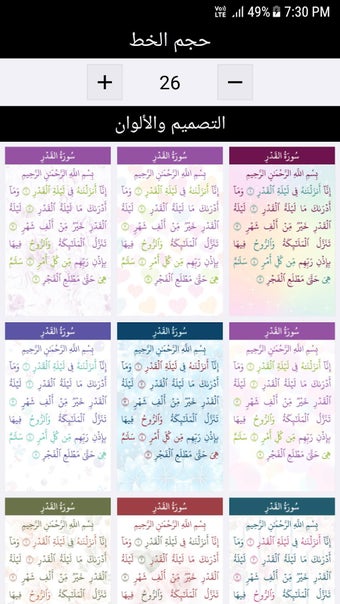 Vo)) LTE 49% 7:30 PM
حجم الخط
+ 26 −
التصميم والألوان
سُورَةُ القَدْرِ
بِسْمِ اللَّهِ الرَّحْمَٰنِ الرَّحِيمِ
إِنَّا أَنزَلْنَٰهُ فِي لَيْلَةِ ٱلْقَدْرِ ① وَمَآ
أَدْرَىٰكَ مَا لَيْلَةُ ٱلْقَدْرِ ② لَيْلَةُ
ٱلْقَدْرِ خَيْرٌ مِّنْ أَلْفِ شَهْرٍ ③
تَنَزَّلُ ٱلْمَلَٰٓئِكَةُ وَٱلرُّوحُ فِيهَا
بِإِذْنِ رَبِّهِم مِّن كُلِّ أَمْرٍ ④ سَلَٰمٌ
هِيَ حَتَّىٰ مَطْلَعِ ٱلْفَجْرِ
سُورَةُ القَدْرِ
بِسْمِ اللَّهِ الرَّحْمَٰنِ الرَّحِيمِ
إِنَّا أَنزَلْنَٰهُ فِي لَيْلَةِ ٱلْقَدْرِ ① وَمَآ
أَدْرَىٰكَ مَا لَيْلَةُ ٱلْقَدْرِ ② لَيْلَةُ
ٱلْقَدْرِ خَيْرٌ مِّنْ أَلْفِ شَهْرٍ ③
تَنَزَّلُ ٱلْمَلَٰٓئِكَةُ وَٱلرُّوحُ فِيهَا
بِإِذْنِ رَبِّهِم مِّن كُلِّ أَمْرٍ ④ سَلَٰمٌ
هِيَ حَتَّىٰ مَطْلَعِ ٱلْفَجْرِ
سُورَةُ القَدْرِ
بِسْمِ اللَّهِ الرَّحْمَٰنِ الرَّحِيمِ
إِنَّا أَنزَلْنَٰهُ فِي لَيْلَةِ ٱلْقَدْرِ ① وَمَآ
أَدْرَىٰكَ مَا لَيْلَةُ ٱلْقَدْرِ ② لَيْلَةُ
ٱلْقَدْرِ خَيْرٌ مِّنْ أَلْفِ شَهْرٍ ③
تَنَزَّلُ ٱلْمَلَٰٓئِكَةُ وَٱلرُّوحُ فِيهَا
بِإِذْنِ رَبِّهِم مِّن كُلِّ أَمْرٍ ④ سَلَٰمٌ
هِيَ حَتَّىٰ مَطْلَعِ ٱلْفَجْرِ
سُورَةُ القَدْرِ
بِسْمِ اللَّهِ الرَّحْمَٰنِ الرَّحِيمِ
إِنَّا أَنزَلْنَٰهُ فِي لَيْلَةِ ٱلْقَدْرِ ① وَمَآ
أَدْرَىٰكَ مَا لَيْلَةُ ٱلْقَدْرِ ② لَيْلَةُ
ٱلْقَدْرِ خَيْرٌ مِّنْ أَلْفِ شَهْرٍ ③
تَنَزَّلُ ٱلْمَلَٰٓئِكَةُ وَٱلرُّوحُ فِيهَا
بِإِذْنِ رَبِّهِم مِّن كُلِّ أَمْرٍ ④ سَلَٰمٌ
هِيَ حَتَّىٰ مَطْلَعِ ٱلْفَجْرِ
سُورَةُ القَدْرِ
بِسْمِ اللَّهِ الرَّحْمَٰنِ الرَّحِيمِ
إِنَّا أَنزَلْنَٰهُ فِي لَيْلَةِ ٱلْقَدْرِ ① وَمَآ
أَدْرَىٰكَ مَا لَيْلَةُ ٱلْقَدْرِ ② لَيْلَةُ
ٱلْقَدْرِ خَيْرٌ مِّنْ أَلْفِ شَهْرٍ ③
تَنَزَّلُ ٱلْمَلَٰٓئِكَةُ وَٱلرُّوحُ فِيهَا
بِإِذْنِ رَبِّهِم مِّن كُلِّ أَمْرٍ ④ سَلَٰمٌ
هِيَ حَتَّىٰ مَطْلَعِ ٱلْفَجْرِ
سُورَةُ القَدْرِ
بِسْمِ اللَّهِ الرَّحْمَٰنِ الرَّحِيمِ
إِنَّا أَنزَلْنَٰهُ فِي لَيْلَةِ ٱلْقَدْرِ ① وَمَآ
أَدْرَىٰكَ مَا لَيْلَةُ ٱلْقَدْرِ ② لَيْلَةُ
ٱلْقَدْرِ خَيْرٌ مِّنْ أَلْفِ شَهْرٍ ③
تَنَزَّلُ ٱلْمَلَٰٓئِكَةُ وَٱلرُّوحُ فِيهَا
بِإِذْنِ رَبِّهِم مِّن كُلِّ أَمْرٍ ④ سَلَٰمٌ
هِيَ حَتَّىٰ مَطْلَعِ ٱلْفَجْرِ
سُورَةُ القَدْرِ
بِسْمِ اللَّهِ الرَّحْمَٰنِ الرَّحِيمِ
إِنَّا أَنزَلْنَٰهُ فِي لَيْلَةِ ٱلْقَدْرِ ① وَمَآ
أَدْرَىٰكَ مَا لَيْلَةُ ٱلْقَدْرِ ② لَيْلَةُ
ٱلْقَدْرِ خَيْرٌ مِّنْ أَلْفِ شَهْرٍ ③
تَنَزَّلُ ٱلْمَلَٰٓئِكَةُ وَٱلرُّوحُ فِيهَا
سُورَةُ القَدْرِ
بِسْمِ اللَّهِ الرَّحْمَٰنِ الرَّحِيمِ
إِنَّا أَنزَلْنَٰهُ فِي لَيْلَةِ ٱلْقَدْرِ ① وَمَآ
أَدْرَىٰكَ مَا لَيْلَةُ ٱلْقَدْرِ ② لَيْلَةُ
ٱلْقَدْرِ خَيْرٌ مِّنْ أَلْفِ شَهْرٍ ③
تَنَزَّلُ ٱلْمَلَٰٓئِكَةُ وَٱلرُّوحُ فِيهَا
سُورَةُ القَدْرِ
بِسْمِ اللَّهِ الرَّحْمَٰنِ الرَّحِيمِ
إِنَّا أَنزَلْنَٰهُ فِي لَيْلَةِ ٱلْقَدْرِ ① وَمَآ
أَدْرَىٰكَ مَا لَيْلَةُ ٱلْقَدْرِ ② لَيْلَةُ
ٱلْقَدْرِ خَيْرٌ مِّنْ أَلْفِ شَهْرٍ ③
تَنَزَّلُ ٱلْمَلَٰٓئِكَةُ وَٱلرُّوحُ فِيهَا